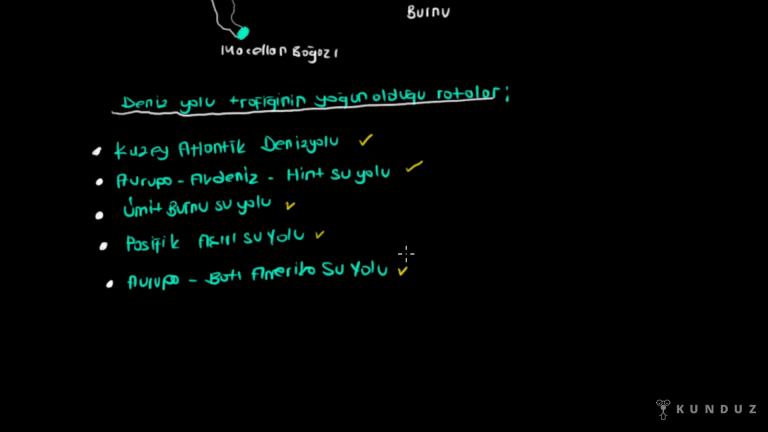 Burnu
Macellan Boğazı
Deniz yolu trafiğinin yoğun olduğu rotalar;
Kuzey Atlantik Denizyolu
Avrupa - Akdeniz - Hint su yolu
Ümit Burnu su yolu
Pasifik Aşırı su Yolu
Avrupa - Batı Amerika Su Yolu
KUNDUZ